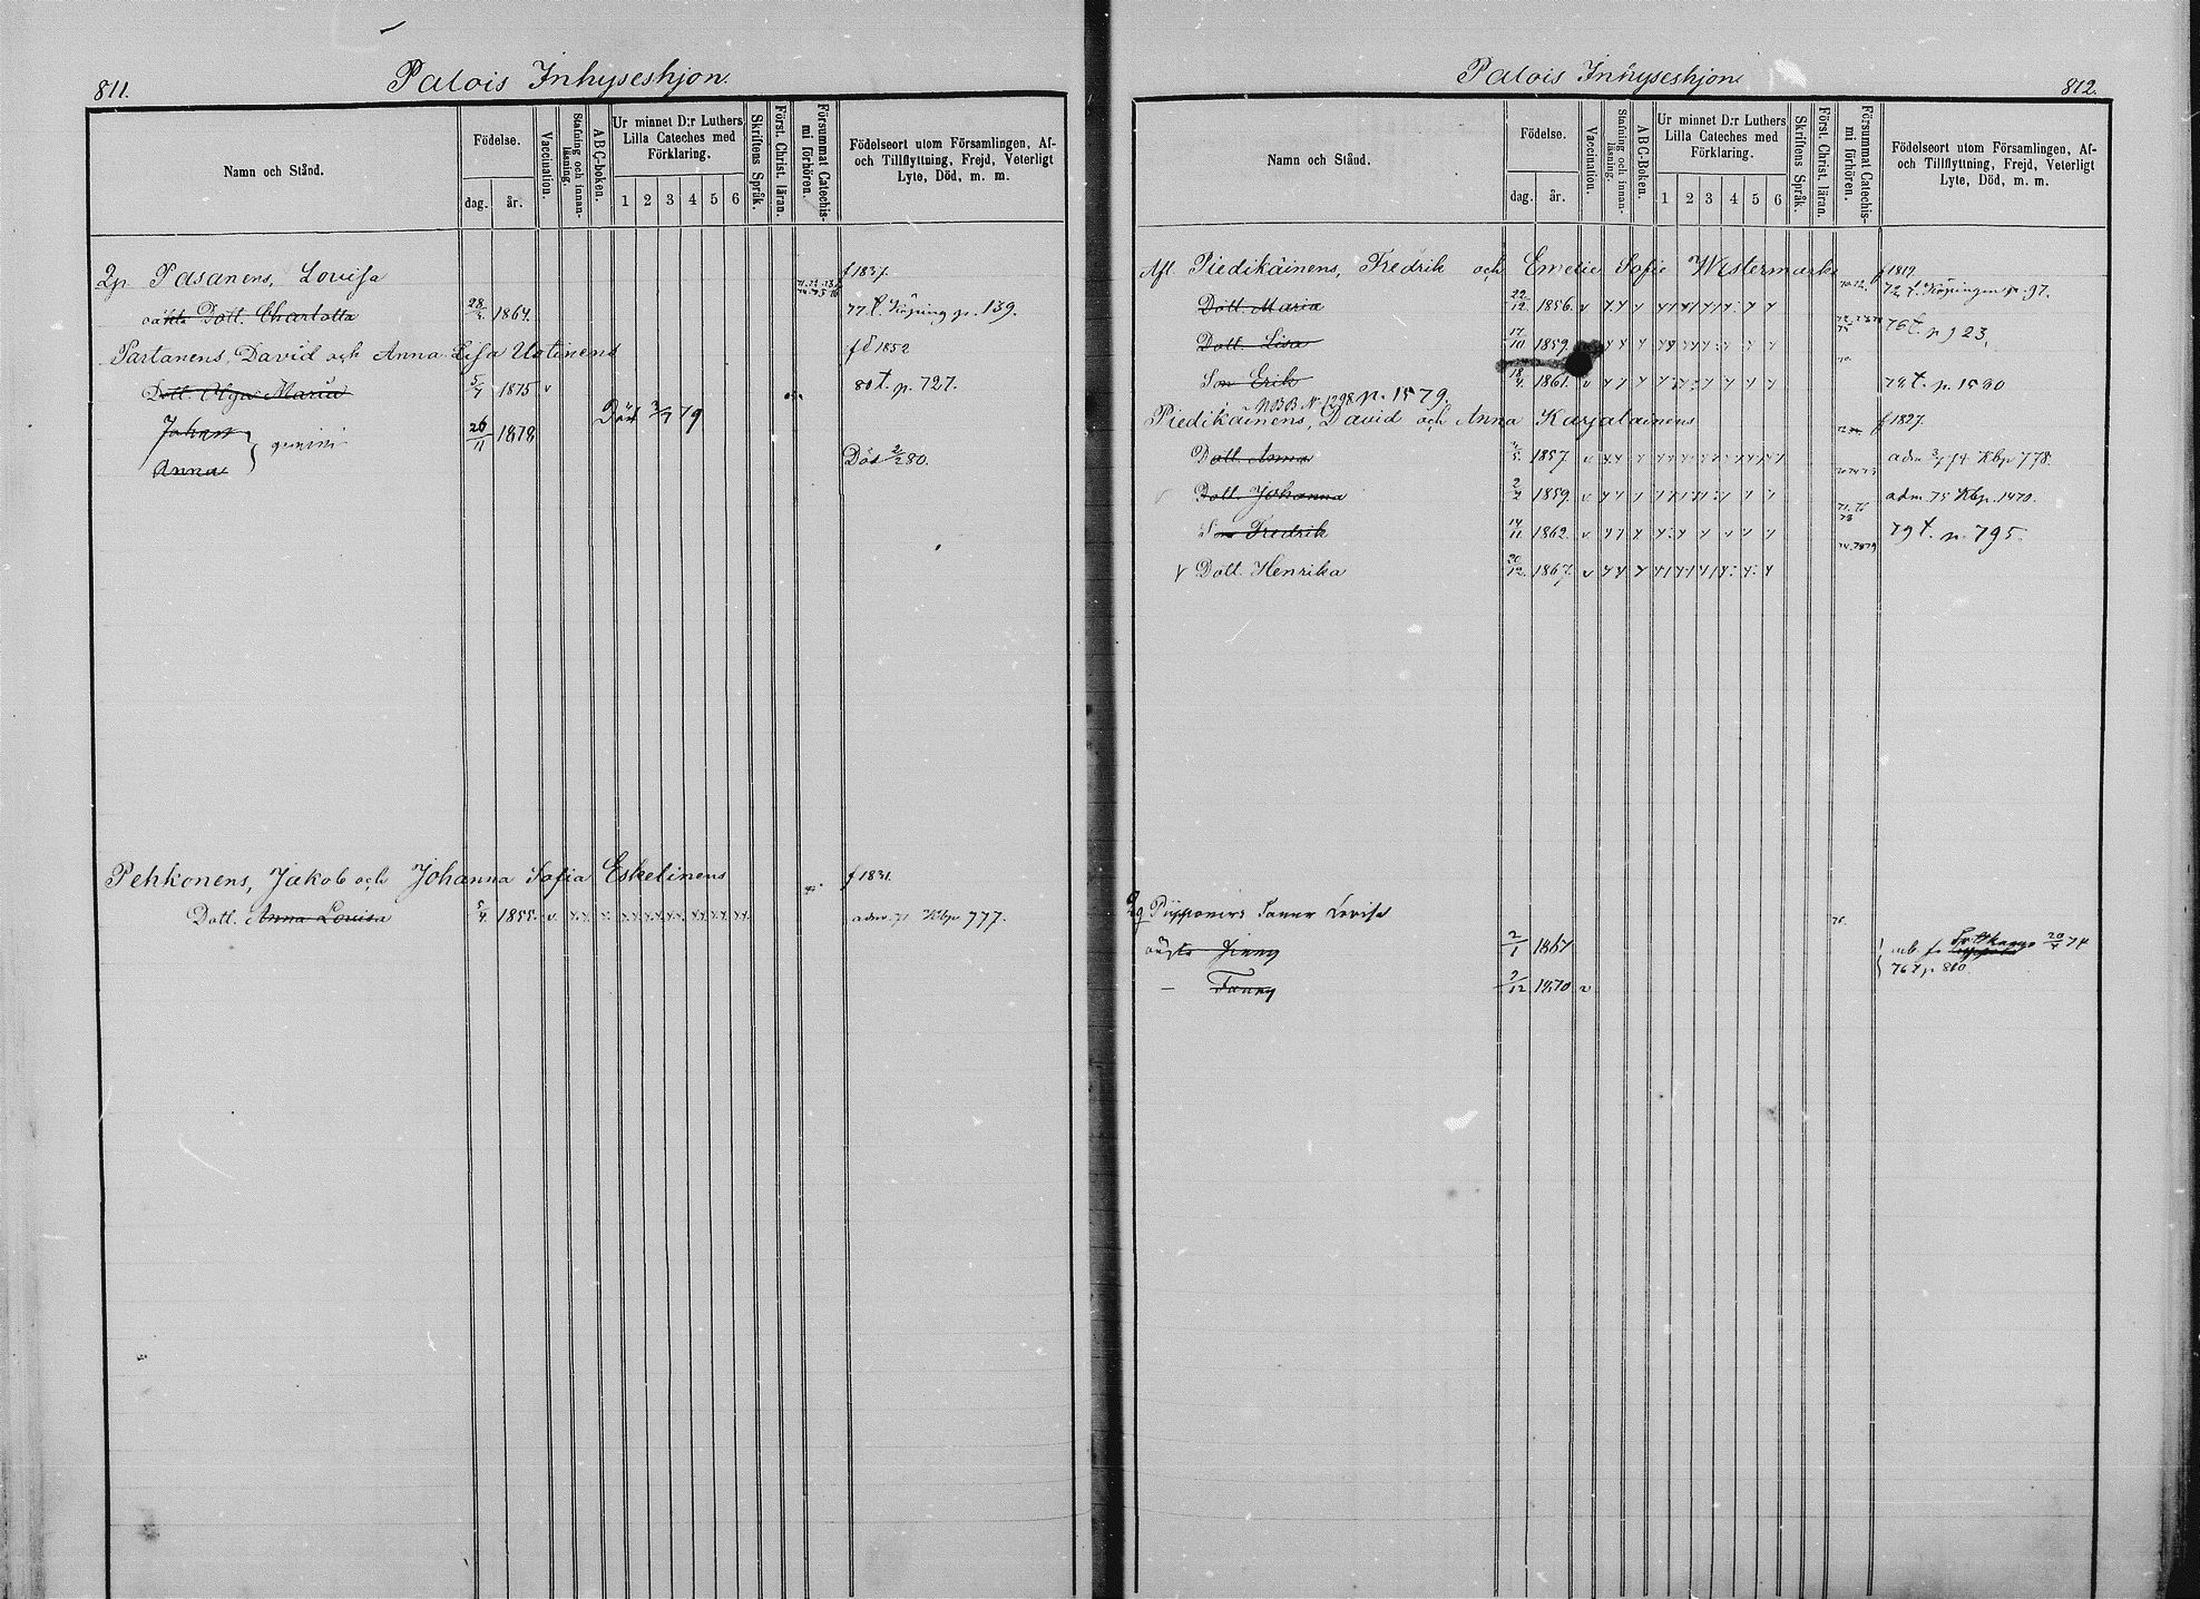 811.
Palois Inhyseshjon.
Namn och Stånd.
Födelse.
dag.
år.
Vaccination.
Stafning och innan-läsning.
ABC-boken.
Ur minnet D:r Luthers
Lilla Cateches med
Förklaring.
1 2 3 4 5 6
Skriftens Språk.
Först. Christ. läran.
Försummat Catechis-
mi förhören.
Födelseort utom Församlingen, Af-
och Tillflyttning, Frejd, Veterligt
Lyte, Död, m. m.
Qp Pasanens, Lovisa f 1837.
oäkta Dott. Charlotta 28 1864. 77 t. Köping p. 139.
Partanens, David och Anna Lisa Uotinens fö 1852
Dott. Olga Maria 5/7 1875 v 80 t. p. 727.
Johan gemini 26/11 1878 Död 3/7 79
Anna Död 2/2 80.
Pehkonens, Jakob och Johanna Sofia Eskelinens f 1831.
Dott. Anna Lovisa 5/4 1855. v adm. 71 Kbp 777.
812.
Palois Inhyseshjon
Namn och Stånd.
Födelse.
dag.
år.
Vaccination.
Stafning och innan-läsning.
ABC-Boken.
Ur minnet D:r Luthers
Lilla Cateches med
Förklaring.
1 2 3 4 5 6
Skriftens Språk.
Först. Christ. läran.
Försummat Catechis-
mi förhören.
Födelseort utom Församlingen, Af-
och Tillflyttning, Frejd, Veterligt
Lyte, Död, m. m.
Afl. Piedikäinens, Fredrik och Emelie Sofie Westermarks f 1817.
Dott. Maria 22/12 1856. v 72 t. Köpingen p. 97.
Dott. Lisa 17/10 1859 76 t. p 123,
Son Erik 18/4 1861. v 78 t. p. 1590
NB B. N. 1298 p. 1579.
Piedikäinens, David och Anna Karjalainens f 1827.
Dott. Anna 1857 v adm 74 Kbp 778.
Dott. Johanna 2/2 1859. v adm. 75 Kbp. 1470.
Son Fredrik 14/11 1862. v 79 t. p. 795.
Dott. Henrika 20/12 1867. v
Qp Lovisa 75.
Jinny 2/1 1867
— Fanny 2/12 1870 v
20/4 74
76 t p 880.